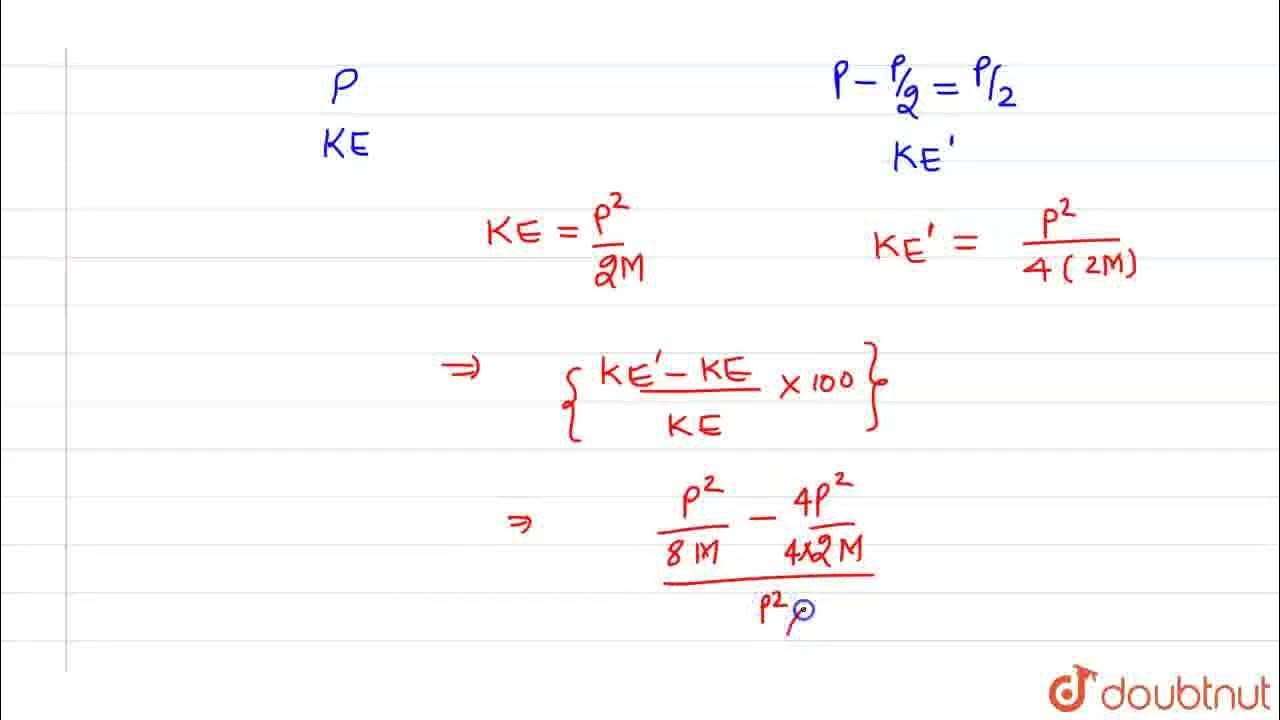 P P - P/2 = P/2
KE KE'
KE = P²/2M KE' = P²/4(2M)
⇒ {(KE' - KE)/KE × 100}
⇒ (P²/8M - 4P²/4×2M)/P²/
doubtnut